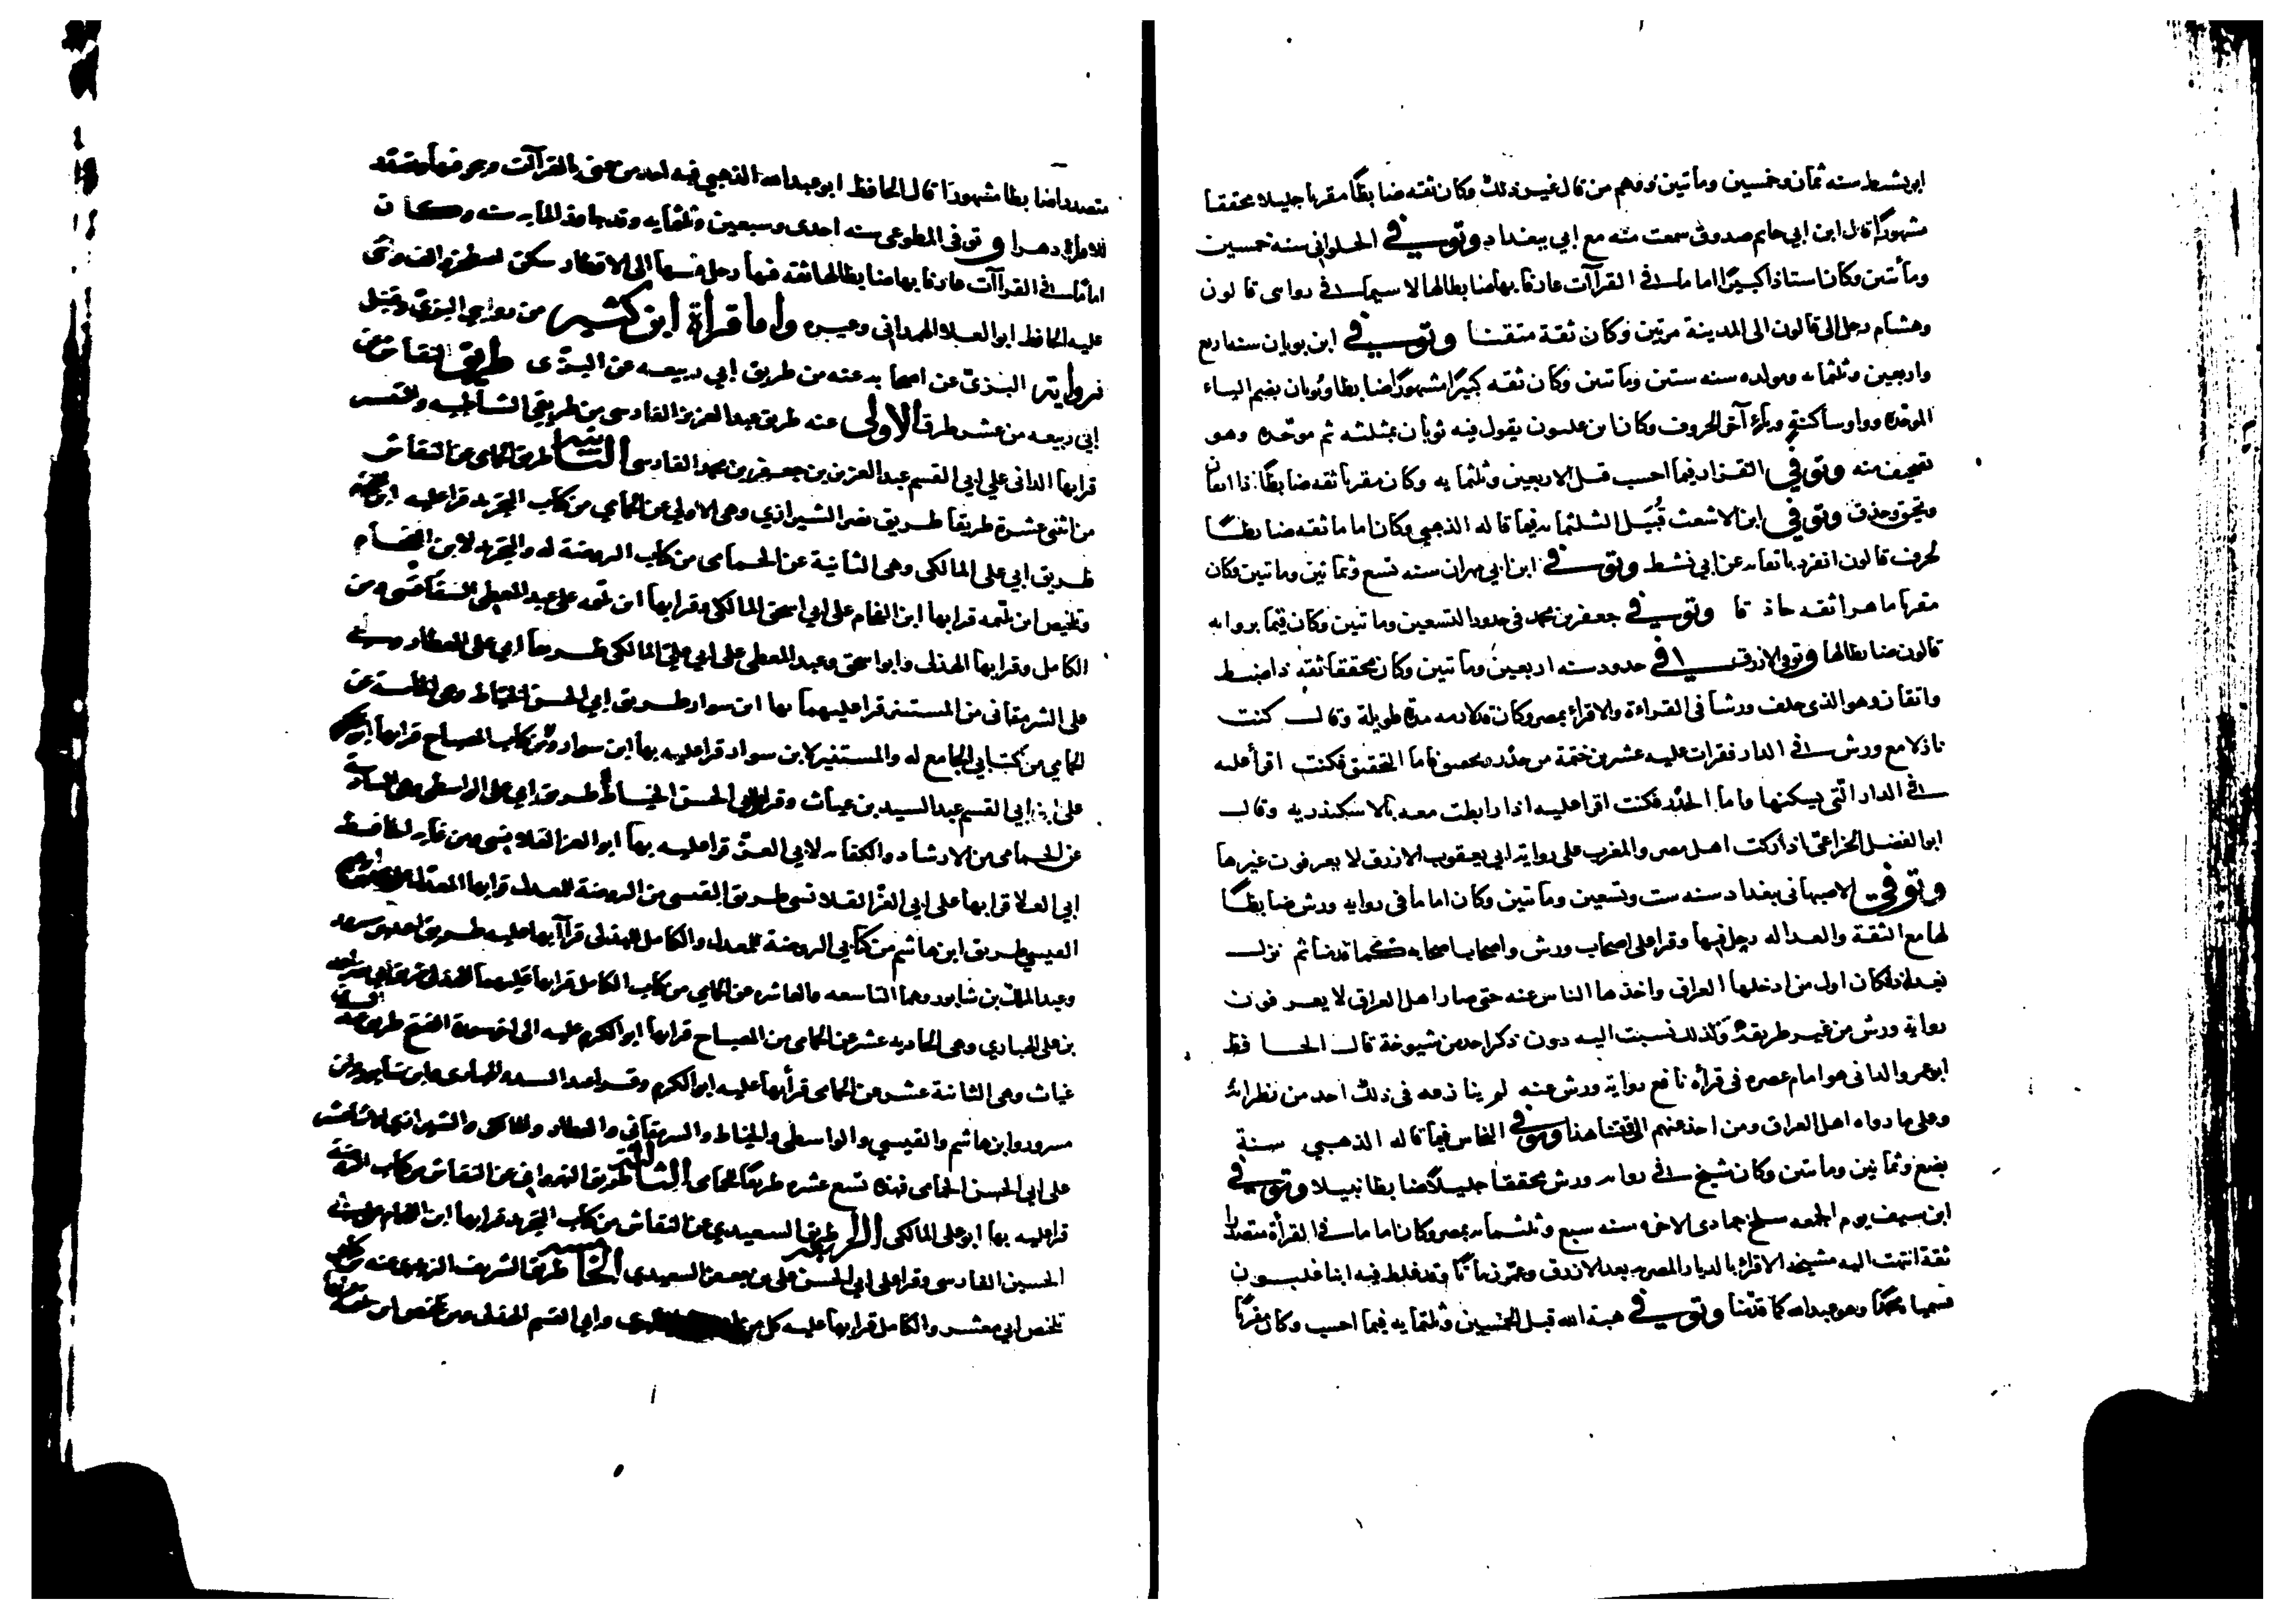 ابو نشيط سنه ثمان وخمسين ومأتين ووهم من قال غير ذلك وكان ثقه ضابطًا مقريا جليلا محققا
مشهورًا قال ابن ابي حاتم صدوق سمعت منه مع ابي ببغداد وتوفي الحلواني سنه خمسين
ومأتين وكان استاذا كبيرًا اماما في القرآآت عارفا بها ضابطا لها لا سيما في روايتي قالون
وهشام رحل الى قالون الى المدينة مرتين وكان ثقة متقنا وتوفي ابن بويان سنه اربع
واربعين وثلثمايه ومولده سنه ستين ومأتين وكان ثقه كبيرًا مشهورًا ضابطا وبُويان بضم الباء
الموحّده وواو ساكنةٍ وياءٍ آخر الحروف وكان ابن غلبون يقول فيه ثوبان بمثلثه ثم موحّده وهو
تصحيف منه وتوفي القزاز فيما احسب قبل الاربعين وثلثمايه وكان مقريا ثقه ضابطًا ذا اتقان
وتحقيق وحذق وتوفي ابن الاشعث قُبَيل الثلثمايه فيما قاله الذهبي وكان اماما ثقه ضابطًا
لحرف قالون انفرد باتقانه عن ابي نشيط وتوفي ابن ابي مهران سنه تسع وثمانين ومأتين وكان
مقريا ماهرا ثقه حاذقا وتوفي جعفر بن محمد في حدود التسعين ومأتين وكان قيّما بروايه
قالون ضابطا لها وتوفي الازرق في حدود سنه اربعين ومأتين وكان محققا ثقه ذا ضبط
واتقان وهو الذي خلف ورشا في القراءة والاقراء بمصر وكان قد لازمه مدة طويلة وقال كنت
نازلا مع ورش في الدار فقرات عليه عشرين ختمة من حدر وتحقيق فاما التحقيق فكنت اقرأ عليه
في الدار التي يسكنها واما الحدر فكنت اقرا عليه اذا رابطت معه بالاسكندريه وقال
ابو الفضل الخزاعي ادركت اهل مصر والمغرب على رواية ابي يعقوب الازرق لا يعرفون غيرها
وتوفي الاصبهاني ببغداد سنه ست وتسعين ومأتين وكان اماما في روايه ورش ضابطًا
لها مع الثقة والعداله رحل فيها وقرا على اصحاب ورش واصحاب اصحابه كما قدمنا ثم نزل
بغداد فكان اول من ادخلها العراق واخذها الناس عنه حتى صار اهل العراق لا يعرفون
رواية ورش من غير طريقه ولذلك نسبت اليه دون ذكر احد من شيوخه قال الحافظ
ابو عمرو الداني هو امام عصره في قرأة نافع رواية ورش عنه لم ينازعه في ذلك احد من نظرائه
وعلى ما رواه اهل العراق ومن اخذ عنهم الى وقتنا هذا وتوفي النحاس فيما قاله الذهبي سنة
بضع وثمانين ومأتين وكان شيخ في روايه ورش محققا جليلًا ضابطا نبيلا وتوفي
ابن سيف يوم الجمعه سلخ جمادى الاخره سنه سبع وثلثمايه بمصر وكان اماما في القرأة متصدرا
ثقة انتهت اليه مشيخة الاقراء بالديار المصريه بعد الازرق وعمّر زمانًا وقد غلط فيه ابنا غلبون
فسمياه محمدًا وهو عبدالله كما قدمنا وتوفي هبة الله قبل الخمسين وثلثمايه فيما احسب وكان مقريًا
متصدرا ضابطا مشهورًا قال الحافظ ابو عبدالله الذهبي فيه احد من عني بالقرآآت وتصدر
للاقراء دهرا وتوفي المطوعي سنه احدى وسبعين وثلثمايه وقد جاوز المايه سنه وكان
امامًا في القرآآت عارفا بها ضابطا لها ثقه فيها رحل فيها الى الاقطار سكن اصطخر
عليه الحافظ ابو العلا الهمداني وغيره واما قرأة ابن كثير من روايتي البزي وقنبل
فرواية البزي عن اصحابه عنه من طريق ابي ربيعه عن البزّي طريق النقاش عن
ابي ربيعه من عشر طرق الاولى عنه طريق عبدالعزيز الفارسي من طريقي الشاطبيه والتيسير
قرا بها الداني على ابي القسم عبدالعزيز بن جعفر بن محمد الفارسي الثانيه طريق الحمامي عن النقاش
من اثنتي عشرة طريقا طريق نصر الشيرازي وهي الاولى عن الحمامي من كتاب التجريد قرا عليه
طريق ابي علي المالكي وهي الثانية عن الحمامي من كتاب الروضة له والتجريد لابن الفحام
وتلخيص ابن بليمه قرا بها ابن الفحام على ابي اسحق المالكي وقرا بها ابن بليمه على عبدالمعطي السفاقسي ومن
الكامل وقرا بها الهذلي وابو اسحق وعبدالمعطي على ابي علي المالكي طريقا ابي علي العطار
على الشرمقاني من المستنير قرا عليهما بها ابن سوار طريق ابي الحسن الخياط وهي الخامسة عن
الحمامي من كتابي الجامع له والمستنير لابن سوار قرا عليه بها ابن سوار ومن كتاب المصباح قرا بها ابو الكرم
على ابي القسم عبدالسيد بن عتاب وقرا على ابي الحسن الخياط طريق ابي علي الواسطي وهي السادسة
عن الحمامي من الارشاد والكفايه لابي العز قرا عليه بها ابو العز القلانسي ومن غايه الحافظ
ابي العلا قرا بها على ابي العز القلانسي طريق القيسي من الروضة للمعدل قرا بها المعدل
القيسي طريق ابن هاشم من كتابي الروضة للمعدل والكامل للهذلي قرآ بها عليه طريق احمد بن مسرور
وعبدالملك بن شابور وهما التاسعه والعاشره عن الحمامي من كتاب الكامل قرا بها عليهما الهذلي
بن علي الهباري وهي الحاديه عشر عن الحمامي من المصباح قرا بها ابو الكرم عليه الى اخر سورة الفتح طريق
عتاب وهي الثانية عشر عن الحمامي قرأ بها عليه ابو الكرم وقرا عبدالسيد والهباري وابن شابور وابن
مسرور وابن هاشم والقيسي والواسطي والخياط والشرمقاني والعطار والمالكي والشيرازي
على ابي الحسن الحمامي فهذه تسع عشره طريقًا للحمامي الثالثه طريق النهرواني عن النقاش من كتاب الروضة
قرا عليه بها ابو علي المالكي الرابعه طريق السعيدي عن النقاش من كتاب التجريد قرا بها ابن الفحام
الحسين الفارسي وقرا على ابي الحسن علي بن جعفر السعيدي الخامسه طريق الشريف الزيدي عنه من كتابي
تلخيص ابي معشر والكامل قرا بها عليه كل من وابي القسم الهذلي ومن تلخيص ابن بليمه